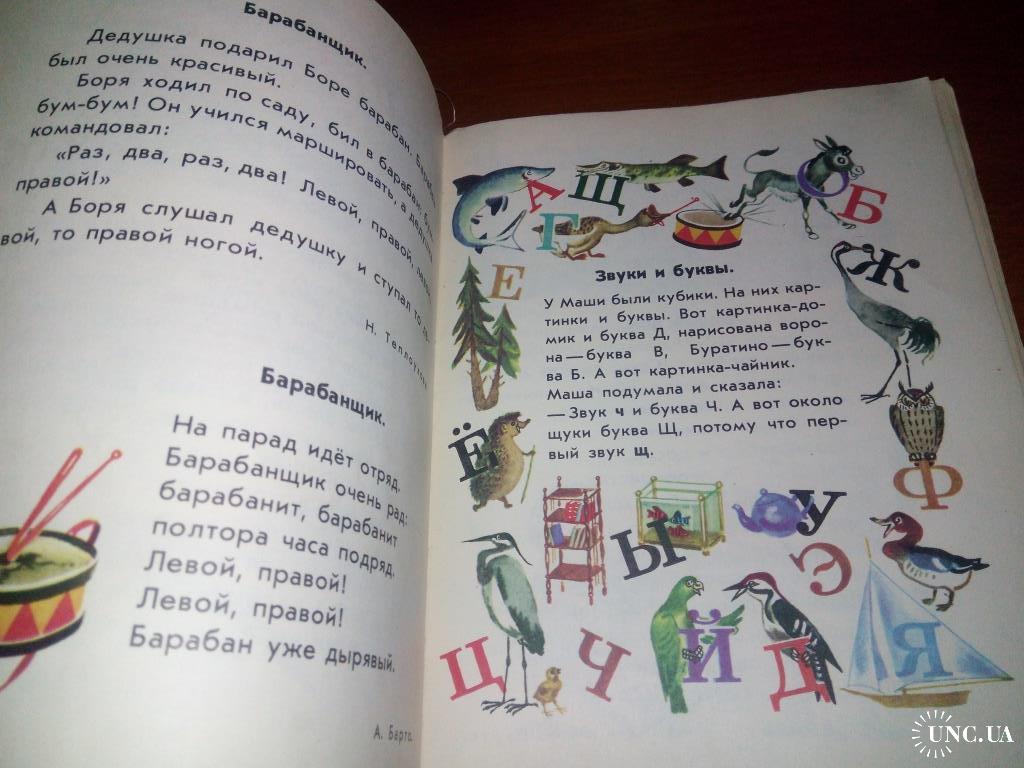 Барабанщик.
Дедушка подарил Боре барабан.
был очень красивый.
Боря ходил по саду, бил в барабан:
бум-бум! Он учился маршировать, а дедушка
командовал:
«Раз, два, раз, два! Левой, правой,
правой!»
А Боря слушал дедушку и ступал то ле-
вой, то правой ногой.
Н.
Барабанщик.
На парад идёт отряд.
Барабанщик очень рад:
барабанит, барабанит
полтора часа подряд.
Левой, правой!
Левой, правой!
Барабан уже дырявый.
А. Барто.
А Щ О Б
Г
Е Ж
Звуки и буквы.
У Маши были кубики. На них кар-
тинки и буквы. Вот картинка-до-
мик и буква Д, нарисована воро-
на — буква В, Буратино — бук-
ва Б. А вот картинка-чайник.
Маша подумала и сказала:
— Звук ч и буква Ч. А вот около
щуки буква Щ, потому что пер-
вый звук щ.
Ё Ф
Ы У Э
Ц Ч Й Д Я
UNC.UA